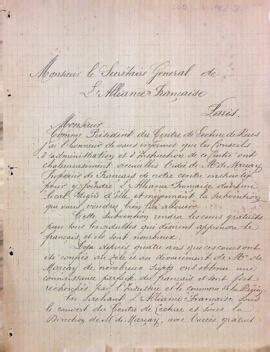 Monsieur le Secrétaire Général de
L'Alliance Française
Paris.
Monsieur
Comme Président du Centre de Lecture de Reus
j'ai l'honneur de vous informer que les Conseils
d'administration et d'Instruction de ce Centre ont
chaleureusement accueilli de Mr de Marçay
Professeur de Français de notre centre
pour y fonder L'Alliance Française dans son
local et la Subvention
que vous voudrez bien lui allouer.
Cette Subvention rendra les cours gratuits
pour tous les adultes qui désirent apprendre le
français et ils sont nombreux.
Déjà depuis quatre ans que ces cours ont
été confiés au zèle et au dévouement de Mr de
Marçay de nombreux sujets ont obtenu une
connaissance parfaite du français et sont fort
recherchés par l'Industrie et le commerce de la Région
En L'Alliance Française sous
le couvert du Centre de Lecture et sous la
Direction de M. de Marçay, avec l'accès gratuit